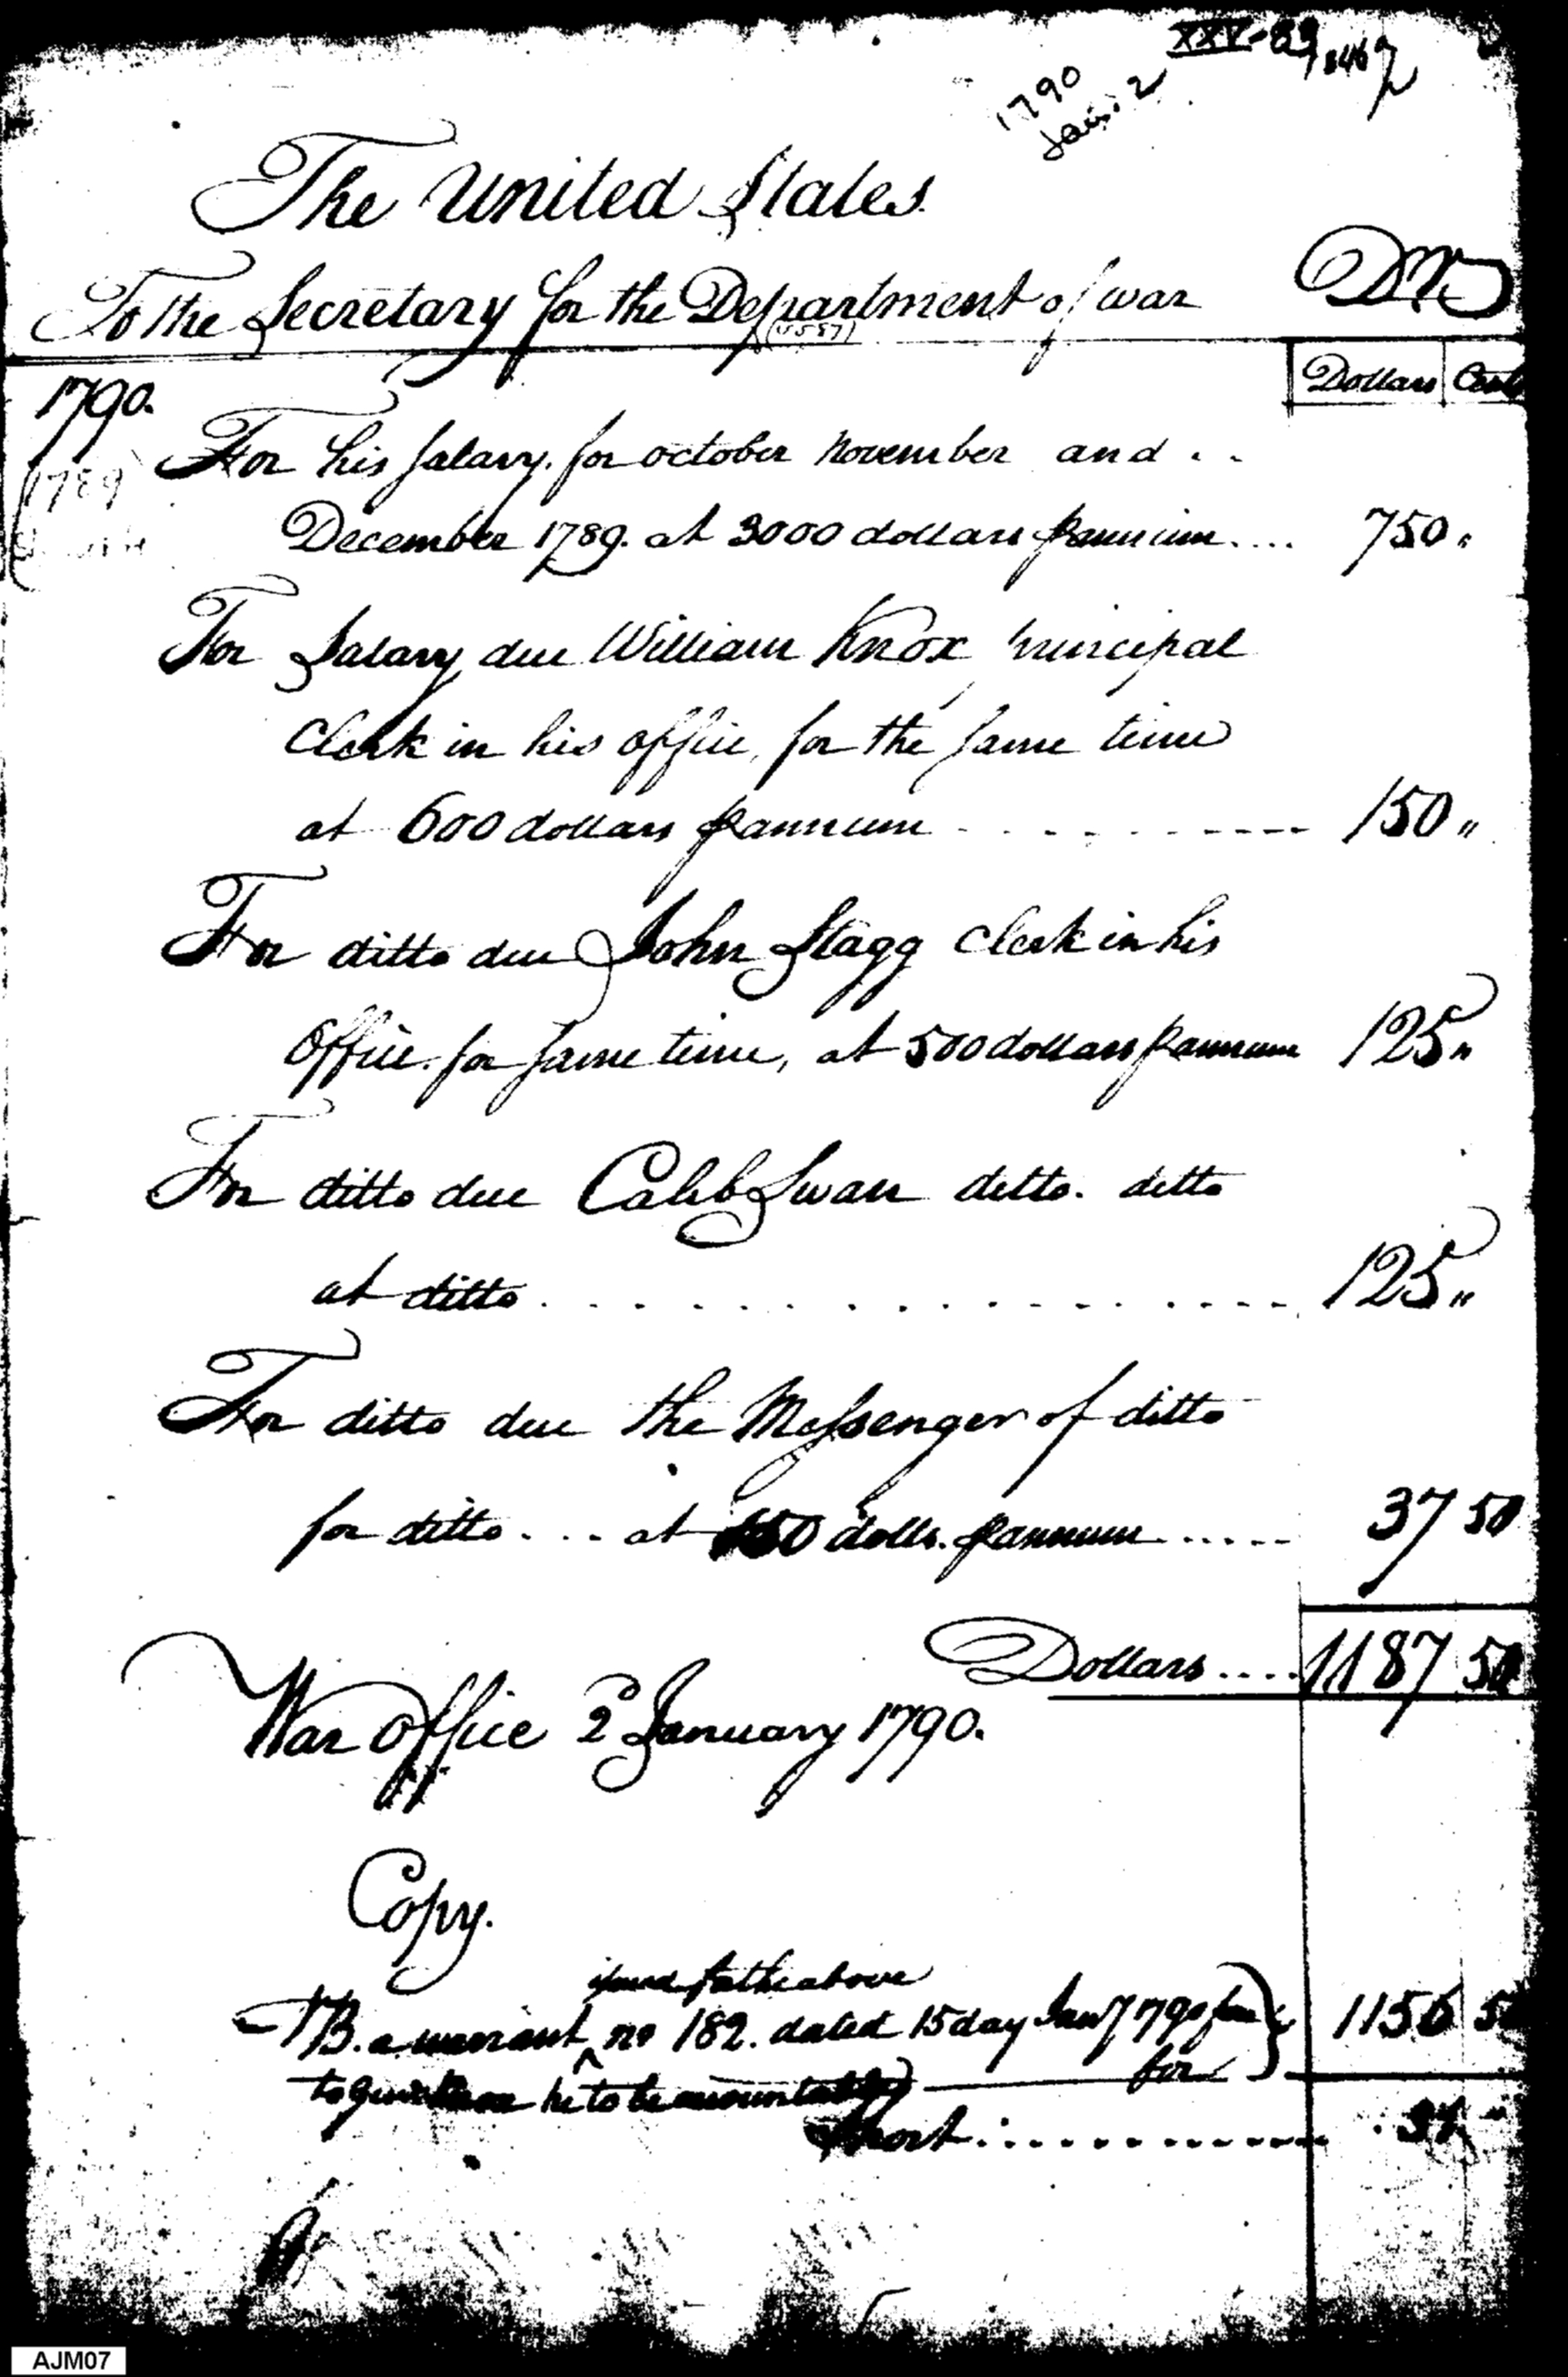 XXV-83
1790
Jan. 2
The United States
To the Secretary for the Department of war Dr
Dollars Cents
1790.
1789
For his Salary. for october November and ..
December 1789. at 3000 dollars pannum.... 750 "
For Salary due William Knox principal
Clerk in his office, for the same time
at 600 dollars pannum 150 "
For ditto due John Stagg Clerk in his
Office. for same time, at 500 dollars pannum 125 "
For ditto due Caleb Swan ditto. ditto
at ditto 125 "
For ditto due the Messenger of ditto
for ditto ... at 150 dolls. pannum ..... 37 50
Dollars .... 1187 50
War office 2 January 1790.
Copy.
issued for the above
NB. a warrant no 182. dated 15 day Jany 1790 1156 50
to he to be accountable for
Short
AJM07